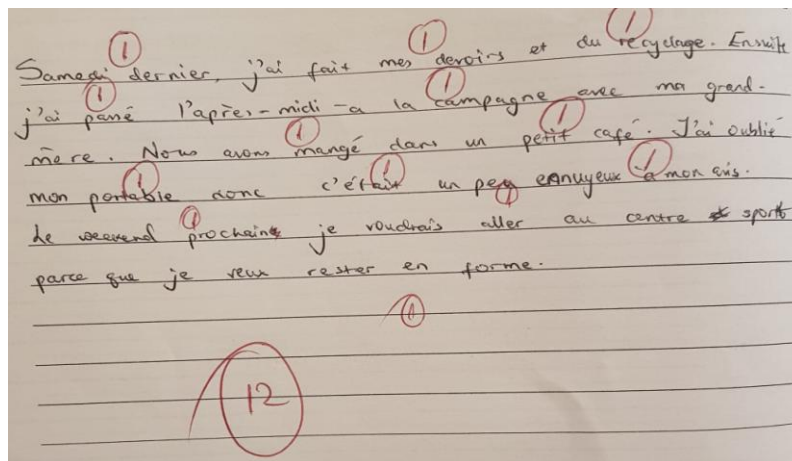 Samedi dernier, j'ai fait mes devoirs et du recyclage. Ensuite
j'ai passé l'après-midi à la campagne avec ma grand-
mère. Nous avons mangé dans un petit café. J'ai oublié
mon portable donc c'était un peu ennuyeux à mon avis.
Le weekend prochain je voudrais aller au centre sportif
parce que je veux rester en forme.
12